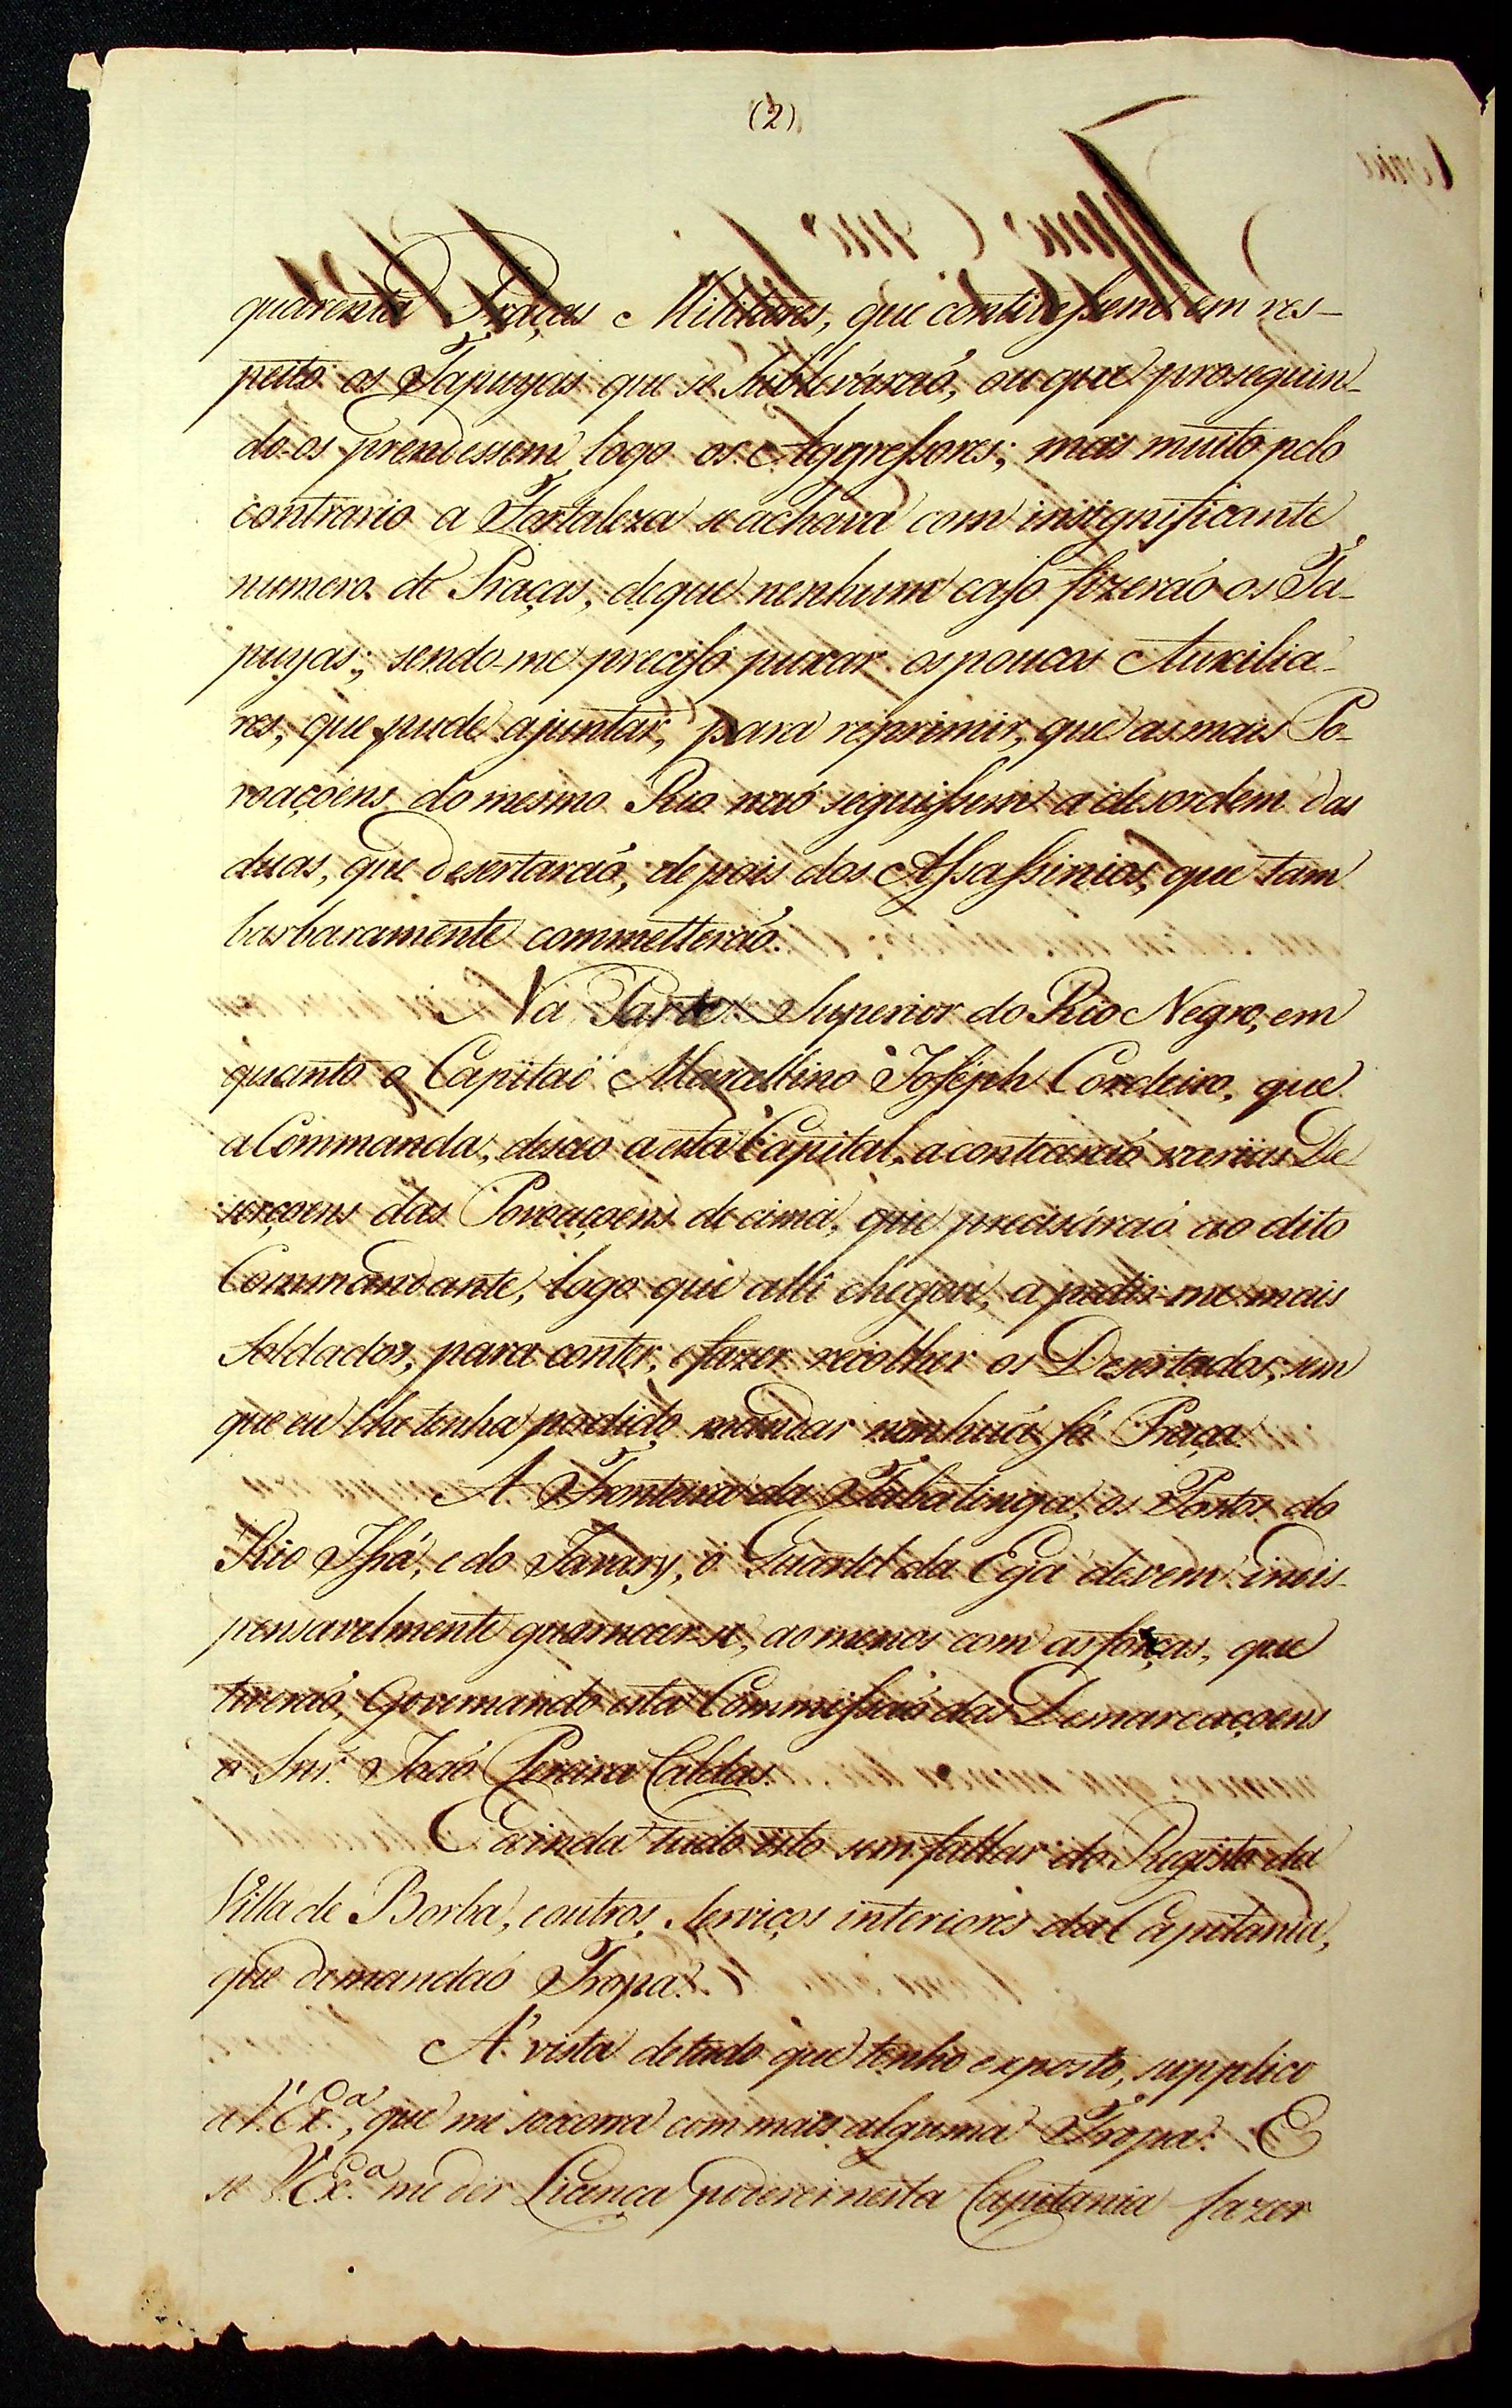 (2)
quarenta Praças Militares, que contivessem em res-
peito os Tapuyas que se sublevárаó, ou que proseguin-
do-os prendessem logo os Aggressores; mas muito pelo
contrario a Fortaleza se achava com insignificante
numero de Praças, de que nenhum caso fizeraó os Ta-
puyas; sendo-me preciso puxar os poucos Auxilia-
res, que pude ajuntar, para reprimir, que as mais Po-
voaçoens do mesmo Rio naó seguissem a desordem das
duas, que desertaraó, depois dos Assassinios, que tam
barbaramente commetteraó.
Na Parte Superior do Rio Negro, em
quanto o Capitaó Marcellino Joseph Cordeiro, que
a Commanda, desceo a esta Capital, acontecaraó varias De
serçoens das Povoaçoens de cima, que precisáraó ao dito
Commandante, logo que alli chegou, a pedir-me mais
Soldados, para conter, e fazer recolher os Desertados, sem
que eu lhe tenha podido mandar nenhuá só Praça.
A Fronteira da Tabatinga, os Postos do
Rio Issá, e do Javary, o Quartel da Ega devem indis-
pensavelmente guarnecer-se, ao menos com as forças, que
tiveraó, Governando esta Commissaó das Demarcaçoens
o Snr. Joaó Pereira Caldas.
E ainda tudo isto sem fallar do Registo da
Villa de Borba, e outros Serviços interiores da Capitania,
que demandaó Tropa.
A' vista de tudo que tenho exposto, supplico
a V. Ex.ª, que me soccorra com mais alguma Tropa: E
se V. Ex.ª me der Licença poderei nesta Capitania fazer